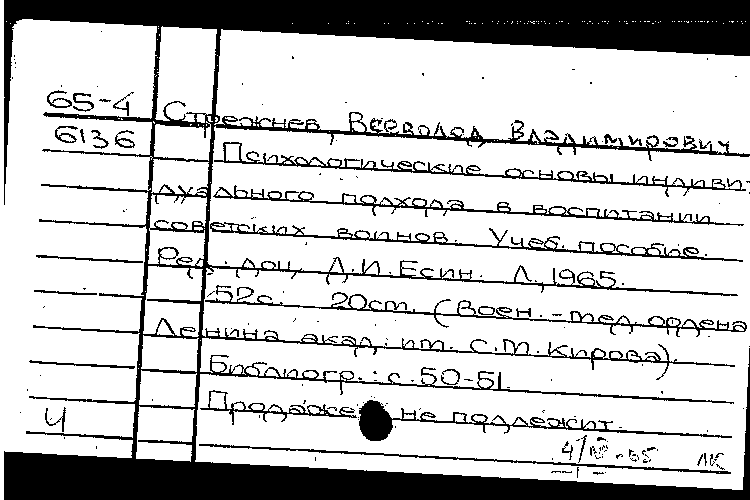 65-4
Стрежнев, Всеволод Владимирович
6136
Психологические основы индиви-
дуального подхода в воспитании
советских воинов. Учеб. пособие.
Ред. доц. Д.И. Есин. Л., 1965.
52с. 20cm. (Воен.-мед. ордена
Ленина акад. им. С.М. Кирова).
Библиогр.: с. 50-51.
Продаже не подлежит.
Ч